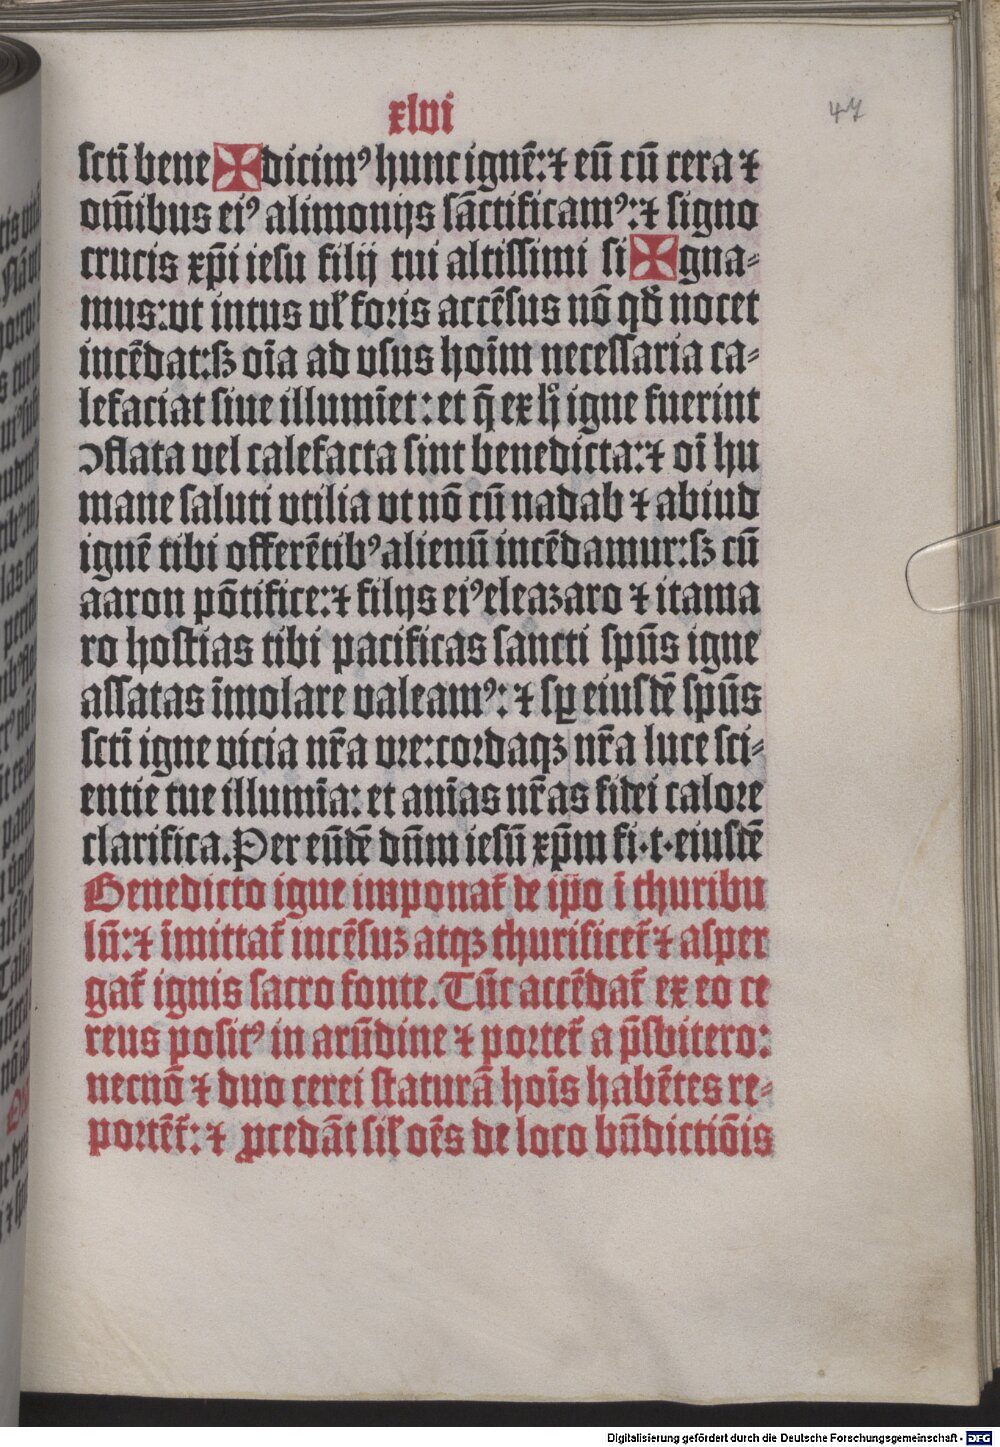 xlvi
47
scti̅ bene✠dicimꝰ hunc igne̅:⁊ eu̅ cu̅ cera ⁊
om̅ibus eiꝰ alimonijs sa̅ctificamꝰ:⁊ signo
crucis xp̅i iesu filij tui altissimi si✠gna⸗
mus:vt intus vl̕ foris acce̅sus no̅ qđ nocet
ince̅dat:sꝫ oi̅a ad vsus hoi̅m necessaria ca⸗
lefaciat siue illumi̅et: et q̅ ex hͦ igne fuerint
ꝯflata vel calefacta sint benedicta:⁊ oi̅ hu
mane saluti vtilia vt no̅ cu̅ nadab ⁊ abiud
igne̅ tibi offere̅tibꝰ alienu̅ ince̅damur:sꝫ cu̅
aaron po̅tifice:⁊ filijs eiꝰ eleazaro ⁊ itama
ro hostias tibi pacificas sancti spu̅s igne
assatas i̅molare valeamꝰ: ⁊ sꝑ eiusde̅ spu̅s
scti̅ igne vicia nr̅a vre:cordaqꝫ nr̅a luce sci⸗
entie tue illumi̅a: et ani̅as nr̅as fidei calore
clarifica. Per eu̅de̅ dn̅m iesu̅ xp̅m fi·t·eiusde̅
Benedicto igne imponat̕ de ip̅o i̅ thuribu
lu̅:⁊ i̅mittat̕ ince̅suꝫ atqꝫ thurificet̕ ⁊ asper
gat̕ ignis sacro fonte. Tu̅c acce̅dat̕ ex eo ce
reus positꝰ in aru̅dine ⁊ portet̕ a p̅sbitero:
necno̅ ⁊ duo cerei statura̅ hoi̅s habe̅tes re⸗
porte̅t̕:⁊ ꝓceda̅t sil̕ oe̅s de loco bn̅dictio̅is
Digitalisierung gefördert durch die Deutsche Forschungsgemeinschaft - DFG